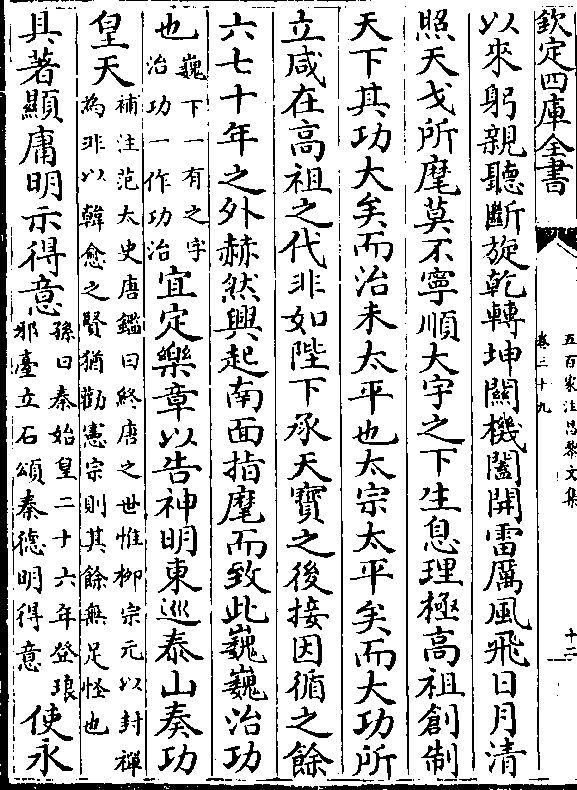 欽定四庫全書
五百家注昌黎文集
卷三十九
十二
以來躬親聽斷旋乾轉坤關機闔開雷厲風飛日月清
照天戈所麾莫不寧順大宇之下生息理極高祖創制
天下其功大矣而治未太平也太宗太平矣而大功所
立咸在高祖之代非如陛下承天寶之後接因循之餘
六七十年之外赫然興起南面指麾而致此巍巍治功
也巍下一有之字治功一作功治宜定樂章以告神明東巡泰山奏功
皇天補注范太史唐鑑曰終唐之世惟柳宗元以封禪為非以韓愈之賢猶勸憲宗則其餘無足怪也
具著顯庸明示得意孫曰秦始皇二十六年登琅邪臺立石頌秦德明得意使永